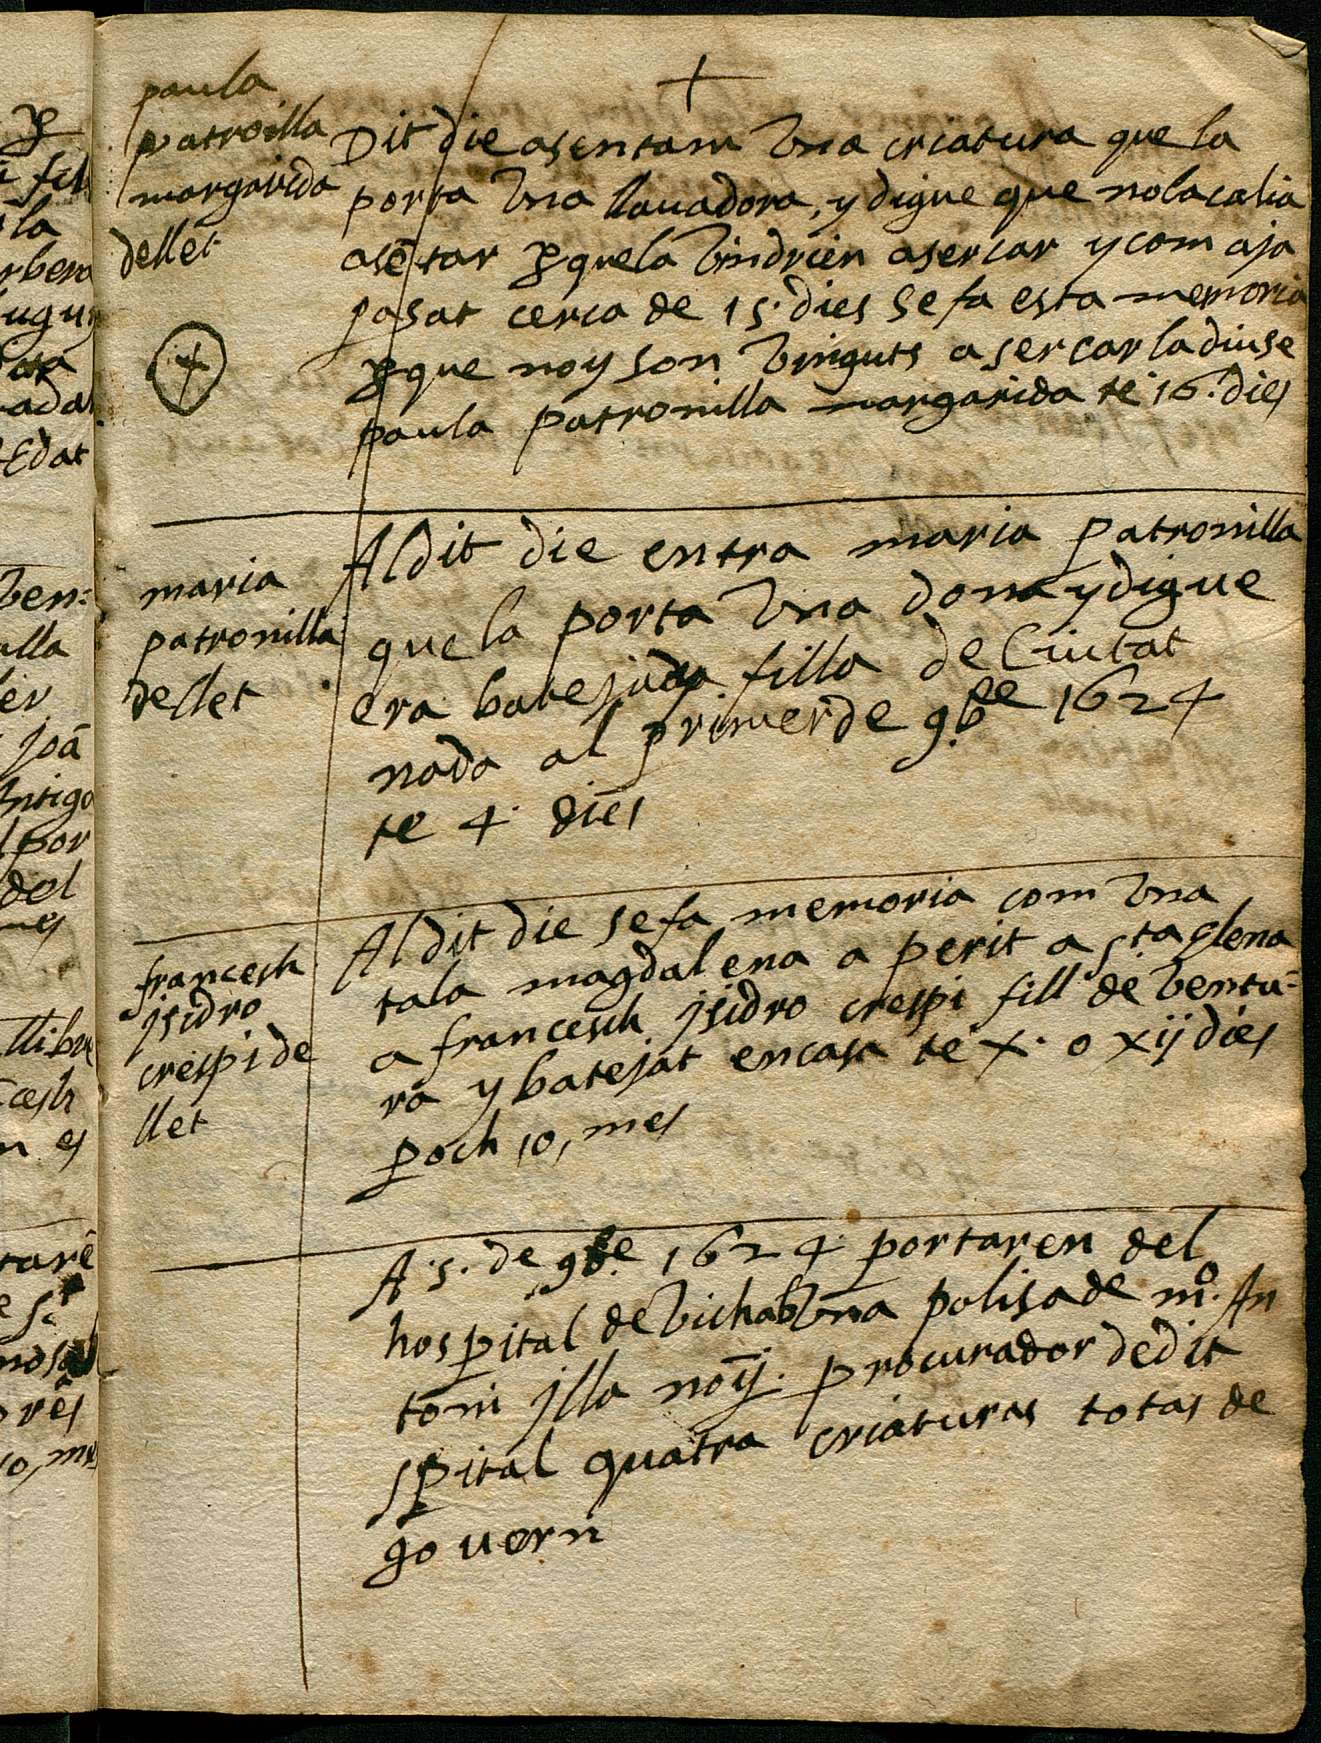 +
paula
patronilla
margarida
de llet
Dit die asentam una criatura que la
porta una llauadora, y digue que no la calia
asētar ꝑque la vindrien a sercar y com aja
pasat cerca de 15. dies se fa esta memoria
ꝑque noy son vinguts a sercar la diuse
paula patronilla margarida te 16. dies
+
maria
patronilla
de llet
Al dit die entra maria patronilla
que la porta una dona y digue
era batejada filla de Ciutat
nada al primer de 9bre 1624
te 4. dies
francesch
jsidro
crespi de
llet
Al dit die se fa memoria com una
tala magdalena a perit a sta glena
a francesch jsidro crespi fill de Ventu-
ra y batejat en casa te x. o xij dies
poch, o, mes
A. 5. de 9bre 1624 portaren del
hospital de Vich ab una polisa de mº. An
toni jlla noȳ. procurador de dit
spital quatra criaturas totas de
govern